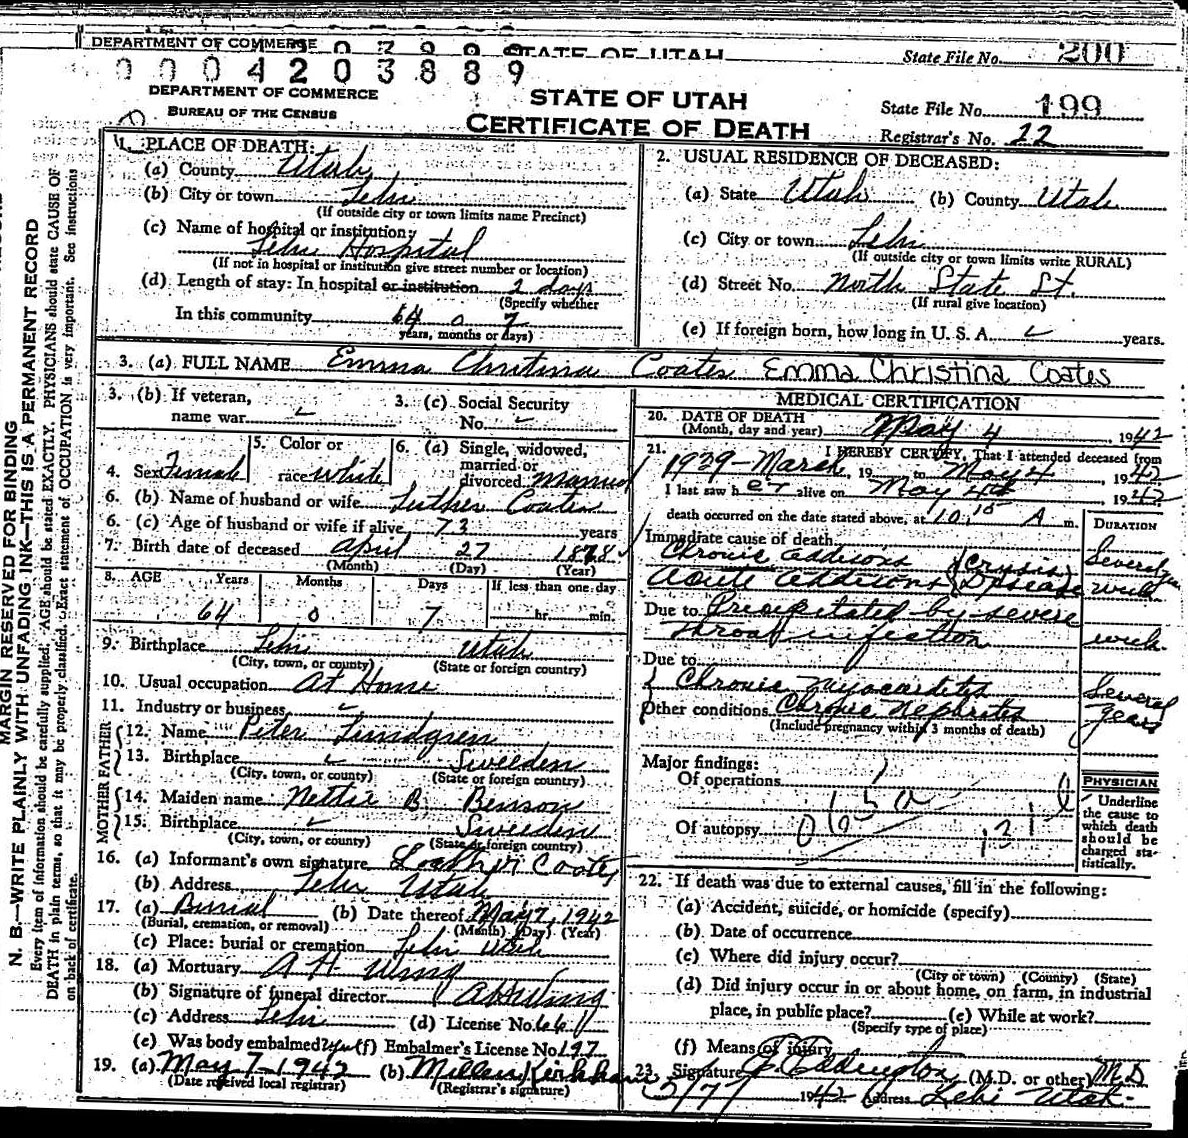 DEPARTMENT OF COMMERCE STATE OF UTAH State File No. 200
0 0 0 4 2 0 3 8 8 9
DEPARTMENT OF COMMERCE
BUREAU OF THE CENSUS
STATE OF UTAH
CERTIFICATE OF DEATH
State File No. 199
Registrar's No. 22
MARGIN RESERVED FOR BINDING
N. B.—WRITE PLAINLY WITH UNFADING INK—THIS IS A PERMANENT RECORD
Every item of information should be carefully supplied. AGE should be stated EXACTLY. PHYSICIANS should state CAUSE OF
DEATH in plain terms, so that it may be properly classified. Exact statement of OCCUPATION is very important. See instructions
on back of certificate.
1. PLACE OF DEATH:
(a) County Utah
(b) City or town Lehi
(If outside city or town limits name Precinct)
(c) Name of hospital or institution:
Lehi Hospital
(If not in hospital or institution give street number or location)
(d) Length of stay: In hospital or institution 2 days
(Specify whether
In this community 64 0 7
years, months or days)
2. USUAL RESIDENCE OF DECEASED:
(a) State Utah (b) County Utah
(c) City or town Lehi
(If outside city or town limits write RURAL)
(d) Street No. North State St.
(If rural give location)
(e) If foreign born, how long in U. S. A. years.
3. (a) FULL NAME Emma Christina Coates Emma Christina Coates
3. (b) If veteran,
name war
3. (c) Social Security
No.
4. Sex Female
5. Color or
race White
6. (a) Single, widowed,
married or
divorced Married
6. (b) Name of husband or wife Luther Coates
6. (c) Age of husband or wife if alive 73 years
7. Birth date of deceased April 27 1878
(Month) (Day) (Year)
8. AGE Years Months Days If less than one day
64 0 7 hr. min.
9. Birthplace Lehi Utah
(City, town, or county) (State or foreign country)
10. Usual occupation At Home
11. Industry or business
FATHER
12. Name Peter Lundgren
13. Birthplace Sweeden
(City, town, or county) (State or foreign country)
MOTHER
14. Maiden name Nettie B. Benson
15. Birthplace Sweeden
(City, town, or county) (State or foreign country)
16. (a) Informant's own signature Luther Coates
(b) Address Lehi Utah
17. (a) Burial (b) Date thereof May 7, 1942
(Burial, cremation, or removal) (Month) (Day) (Year)
(c) Place: burial or cremation Lehi Utah
18. (a) Mortuary A H Wing
(b) Signature of funeral director A H Wing
(c) Address Lehi (d) License No. 661
(e) Was body embalmed? Yes (f) Embalmer's License No. 197
19. (a) May 7-1942 (b) Millen Kirkham
(Date received local registrar) (Registrar's signature)
MEDICAL CERTIFICATION
20. DATE OF DEATH
(Month, day and year) May 4, 1942
21. I HEREBY CERTIFY, That I attended deceased from
1939-March 19 to May 4, 1942
I last saw her alive on May 4th 1942
death occurred on the date stated above, at 10:15 A m. DURATION
Immediate cause of death
Chronic Addisons Crisis Several years
Acute Addisons Disease week
Due to Precipitated by severe
throat infection week.
Due to
Chronic Myocarditis Several
Other conditions Chronic Nephritis years
(Include pregnancy within 3 months of death)
Major findings:
Of operations
Of autopsy
PHYSICIAN
Underline
the cause to
which death
should be
charged sta-
tistically.
22. If death was due to external causes, fill in the following:
(a) Accident, suicide, or homicide (specify)
(b) Date of occurrence
(c) Where did injury occur?
(City or town) (County) (State)
(d) Did injury occur in or about home, on farm, in industrial
place, in public place? (e) While at work?
(Specify type of place)
(f) Means of injury
23. Signature Eddington (M.D. or other) M.D
5/7 1942 Address Lehi Utah.